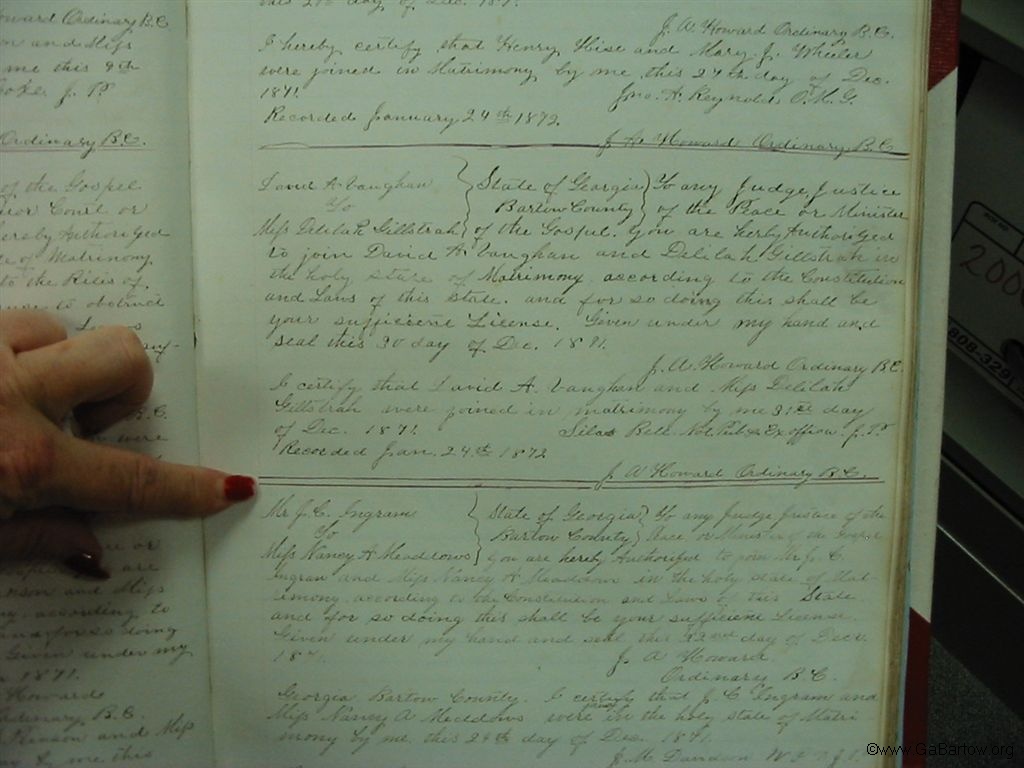 oward Ordinary B.C.
on and Miss
me this 9th
J. P.
Ordinary B.C.
of the Gospel
rior Court or
hereby Authorized
of Matrimony
to the Rites of
to obstruct
Laws
B.C.
were
are
and Miss
according to
and for so doing
Given under my
1871.
Howard
dinary, B.C.
Rinson and Miss
by me this
day of Dec. 1871.
J. A. Howard Ordinary B.C.
I hereby certify that Henry Hise and Mary J. Wheler
were joined in Matrimony by me this 27th day of Dec.
1871. Jno. A. Reynolds O.M.G.
Recorded January 24th 1872.
J. A. Howard Ordinary B.C.
David A. Vaughan State of Georgia To any Judge, Justice
To Bartow County of the Peace or Minister
Miss Delilah Gillstrah of the Gospel. you are herby Authorized
to join David A. Vaughan and Delilah Gillstrah in
the holy state of Matrimony according to the Constitution
and Laws of this State. and for so doing this shall be
your sufficient License. Given under my hand and
seal this 30 day of Dec. 1871.
J. A. Howard Ordinary B.C.
I certify that David A. Vaughan and Miss Delilah
Gillstrah were joined in matrimony by me 31st day
of Dec. 1871 Silas Bell Not. Pub & Ex officio J. P.
Recorded Jan. 24th 1872
J A Howard Ordinary B.C.
Mr J. C. Ingram State of Georgia To any Judge Justice of the
To Bartow County Peace, or Minister of the Gospel
Miss Nancy A Meadows you are hereby Authorized to join Mr J. C.
Ingram and Miss Nancy A Meadows in the holy state of Mat-
rimony according to the Constitution and Laws of this State
and for so doing this shall be your sufficient License.
Given under my hand and seal this 22nd day of Decr.
1871. J. A Howard
Ordinary B.C.
Georgia Bartow County. I certify that J. C Ingram and
Miss Nancy A Meddows were joined in the holy state of Matri
mony by me this 24th day of Dec. 1871.
J. M. Davidson
200
808-329
©www.GaBartow.org